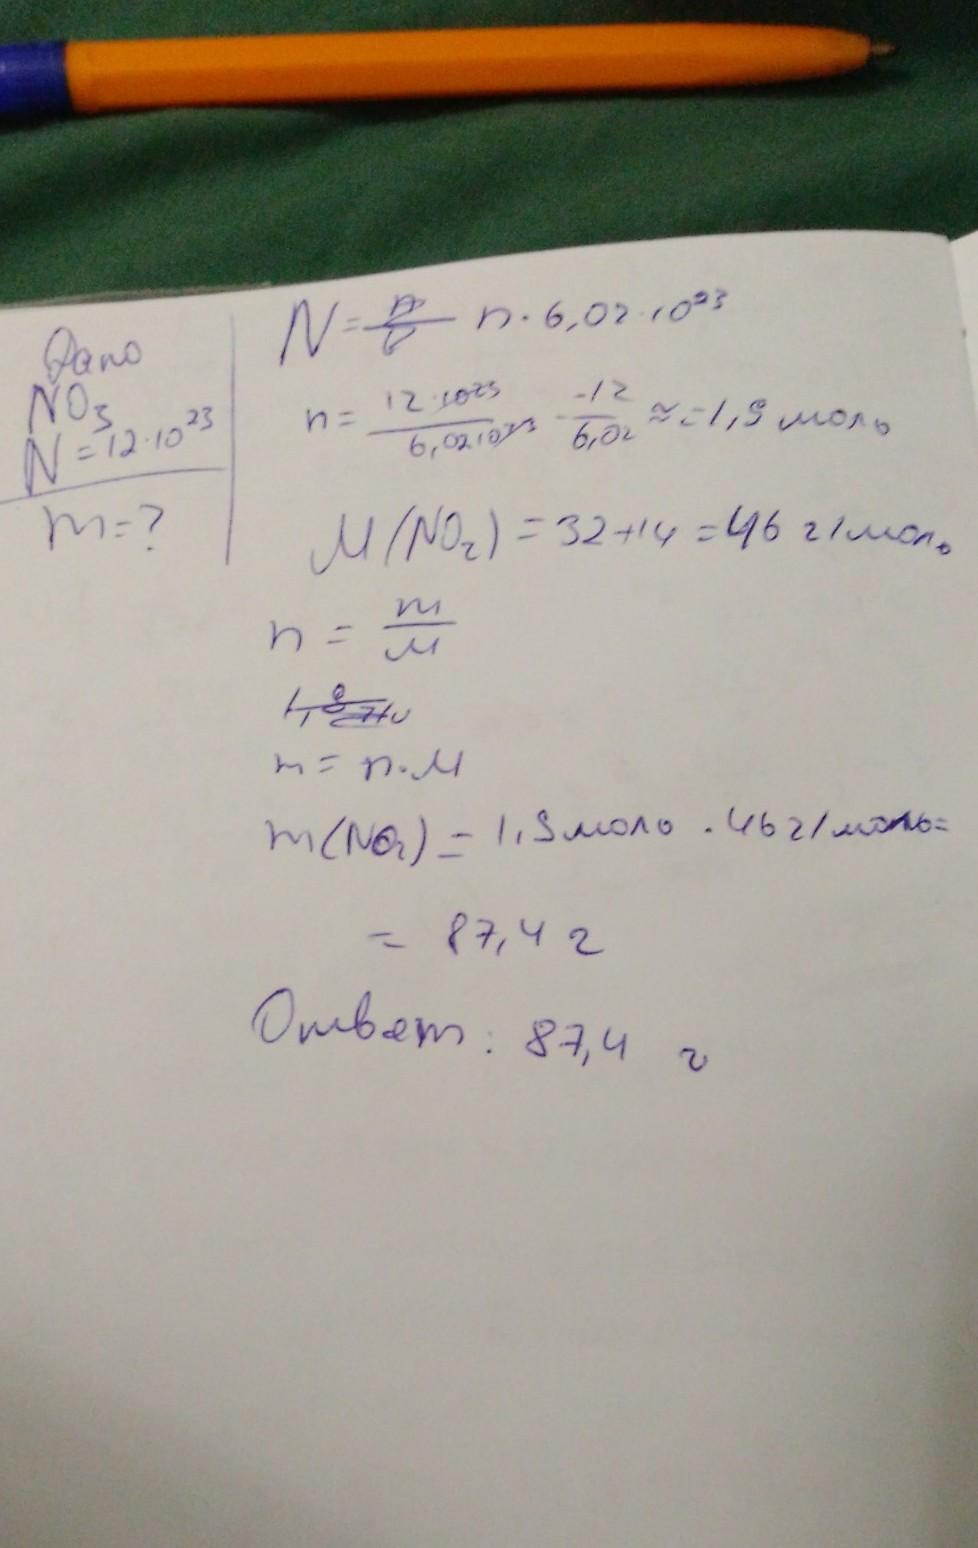 Дано
NO3
N = 12·10²³
m = ?
N = n · 6,02 · 10²³
n = 12·10²³ / 6,02·10²³ = 12 / 6,02 ≈ = 1,9 моль
M(NO2) = 32+14 = 46 г/моль
n = m / M
m = n·M
m(NO2) = 1,9 моль · 46 г/моль =
= 87,4 г
Ответ: 87,4 г